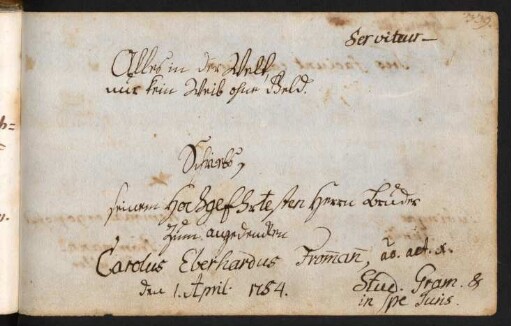 Serviteur
Alles in der Welt,
nur kein Weib ohne Geld.
Schriebs,
seinem Hochgeehrtesten Herrn Bruder
zum angedencken
Carolus Eberhardus Froman̄,
den 1. April. 1754.
Stud. Gram. &
in spe Juris.